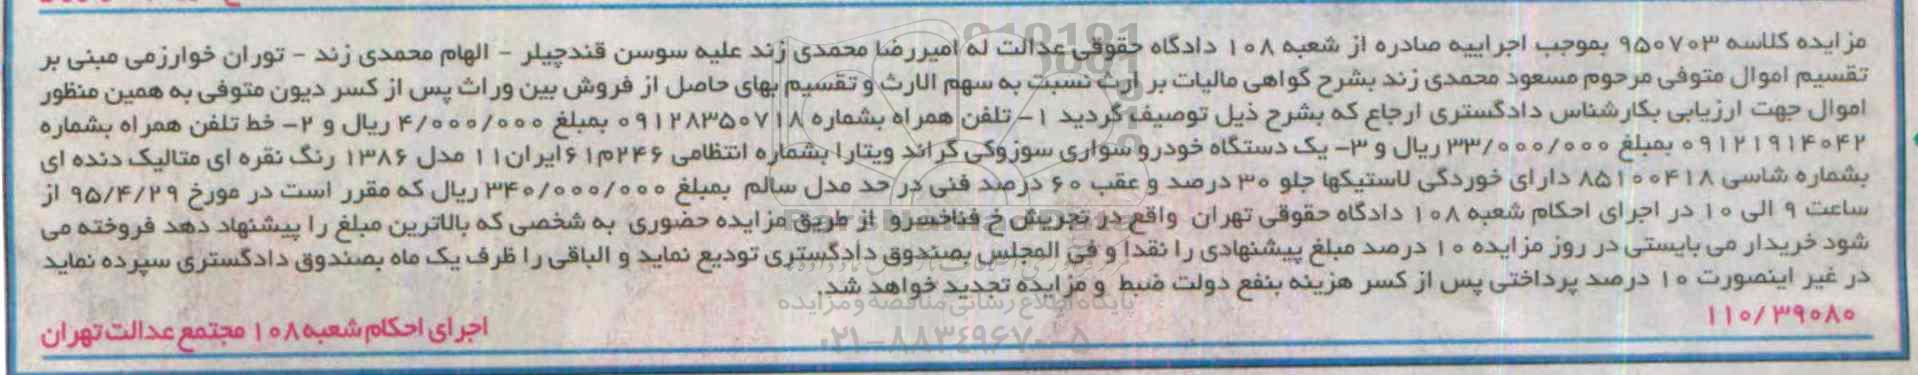 مزایده کلاسه ۹۵۰۷۰۳ بموجب اجراییه صادره از شعبه ۱۰۸ دادگاه حقوقی عدالت له امیررضا محمدی زند علیه سوسن قندچیلر - الهام محمدی زند - توران خوارزمی مبنی بر
تقسیم اموال متوفی مرحوم مسعود محمدی زند بشرح گواهی مالیات بر ارث نسبت به سهم الارث و تقسیم بهای حاصل از فروش بین وراث پس از کسر دیون متوفی به همین منظور
اموال جهت ارزیابی بکارشناس دادگستری ارجاع که بشرح ذیل توصیف گردید ۱- تلفن همراه بشماره ۰۹۱۲۸۳۵۰۷۱۸ بمبلغ ۴/۰۰۰/۰۰۰ ریال و ۲- خط تلفن همراه بشماره
۰۹۱۲۱۹۱۴۰۴۲ بمبلغ ۳۳/۰۰۰/۰۰۰ ریال و ۳- یک دستگاه خودرو سواری سوزوکی گراند ویتارا بشماره انتظامی ۲۴۶م۶۱ایران۱۱ مدل ۱۳۸۶ رنگ نقره ای متالیک دنده ای
بشماره شاسی ۸۵۱۰۰۴۱۸ دارای خوردگی لاستیکها جلو ۳۰ درصد و عقب ۶۰ درصد فنی در حد مدل سالم بمبلغ ۳۴۰/۰۰۰/۰۰۰ ریال که مقرر است در مورخ ۹۵/۴/۲۹ از
ساعت ۹ الی ۱۰ در اجرای احکام شعبه ۱۰۸ دادگاه حقوقی تهران واقع در تجریش خ فناخسرو از طریق مزایده حضوری به شخصی که بالاترین مبلغ را پیشنهاد دهد فروخته می
شود خریدار می بایستی در روز مزایده ۱۰ درصد مبلغ پیشنهادی را نقدا و فی المجلس بصندوق دادگستری تودیع نماید و الباقی را ظرف یک ماه بصندوق دادگستری سپرده نماید
در غیر اینصورت ۱۰ درصد پرداختی پس از کسر هزینه بنفع دولت ضبط و مزایده تجدید خواهد شد.
پایگاه اطلاع رسانی مناقصه و مزایده
۱۱۰/۳۹۰۸۰
اجرای احکام شعبه ۱۰۸ مجتمع عدالت تهران
۰۲۱-۸۸۳۴۹۶۷۰-۵